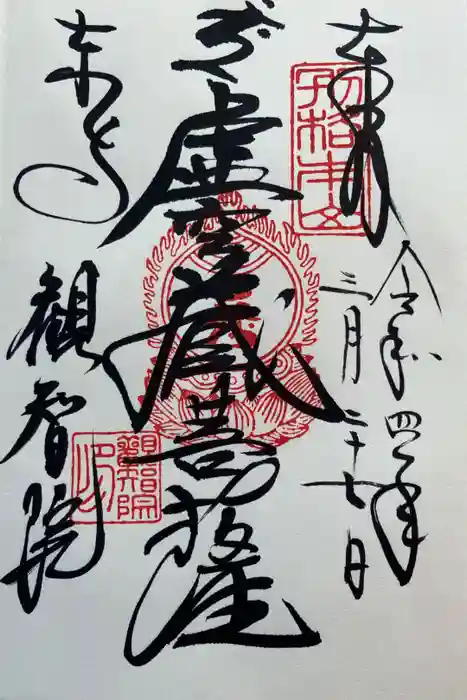 奉拝
令和四年
三月二十七日
虚空蔵菩薩
東寺
観智院
観智院印